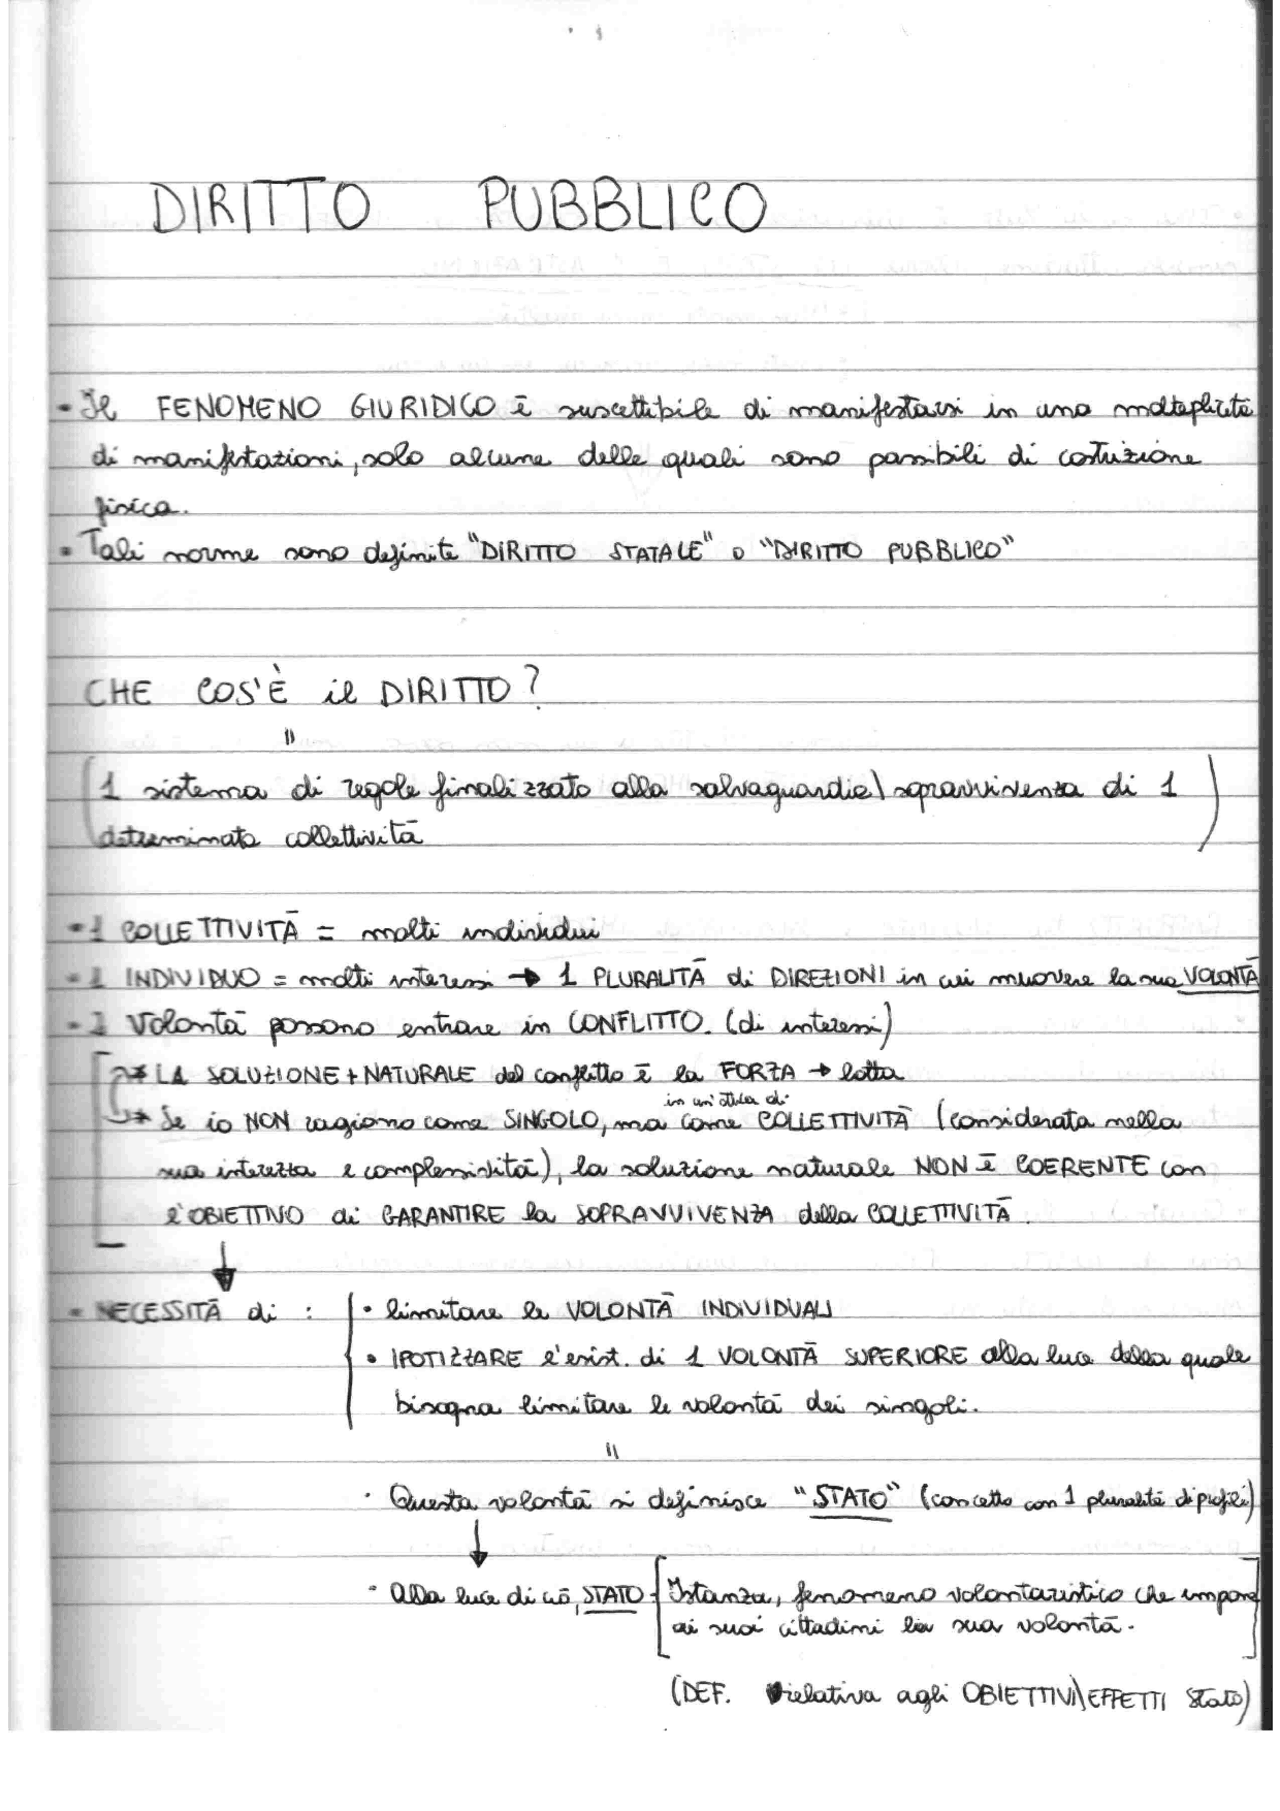 DIRITTO PUBBLICO
- Il FENOMENO GIURIDICO è suscettibile di manifestarsi in una molteplicità
di manifestazioni, solo alcune delle quali sono passibili di costrizione
fisica.
• Tali norme sono definite "DIRITTO STATALE" o "DIRITTO PUBBLICO"
CHE COS'È il DIRITTO?
"
(1 sistema di regole finalizzato alla salvaguardia\sopravvivenza di 1
determinata collettività)
• 1 COLLETTIVITÀ = molti individui
- 1 INDIVIDUO = molti interessi → 1 PLURALITÀ di DIREZIONI in cui muovere la sua VOLONTÀ
- 2 Volontà possono entrare in CONFLITTO. (di interessi)
* LA SOLUZIONE + NATURALE del conflitto è la FORZA → lotta
in un'ottica di
* Se io NON ragiono come SINGOLO, ma come COLLETTIVITÀ (considerata nella
sua interezza e complessività), la soluzione naturale NON È COERENTE con
l'OBIETTIVO di GARANTIRE la SOPRAVVIVENZA della COLLETTIVITÀ.
↓
• NECESSITÀ di : • limitare le VOLONTÀ INDIVIDUALI
• IPOTIZZARE l'esist. di 1 VOLONTÀ SUPERIORE alla luce della quale
bisogna limitare le volontà dei singoli.
"
• Questa volontà si definisce "STATO" (concetto con 1 pluralità di profili)
↓
• Alla luce di ciò, STATO [Istanza, fenomeno volontaristico che impone
ai suoi cittadini la sua volontà.]
(DEF. relativa agli OBIETTIVI\EFFETTI Stato)